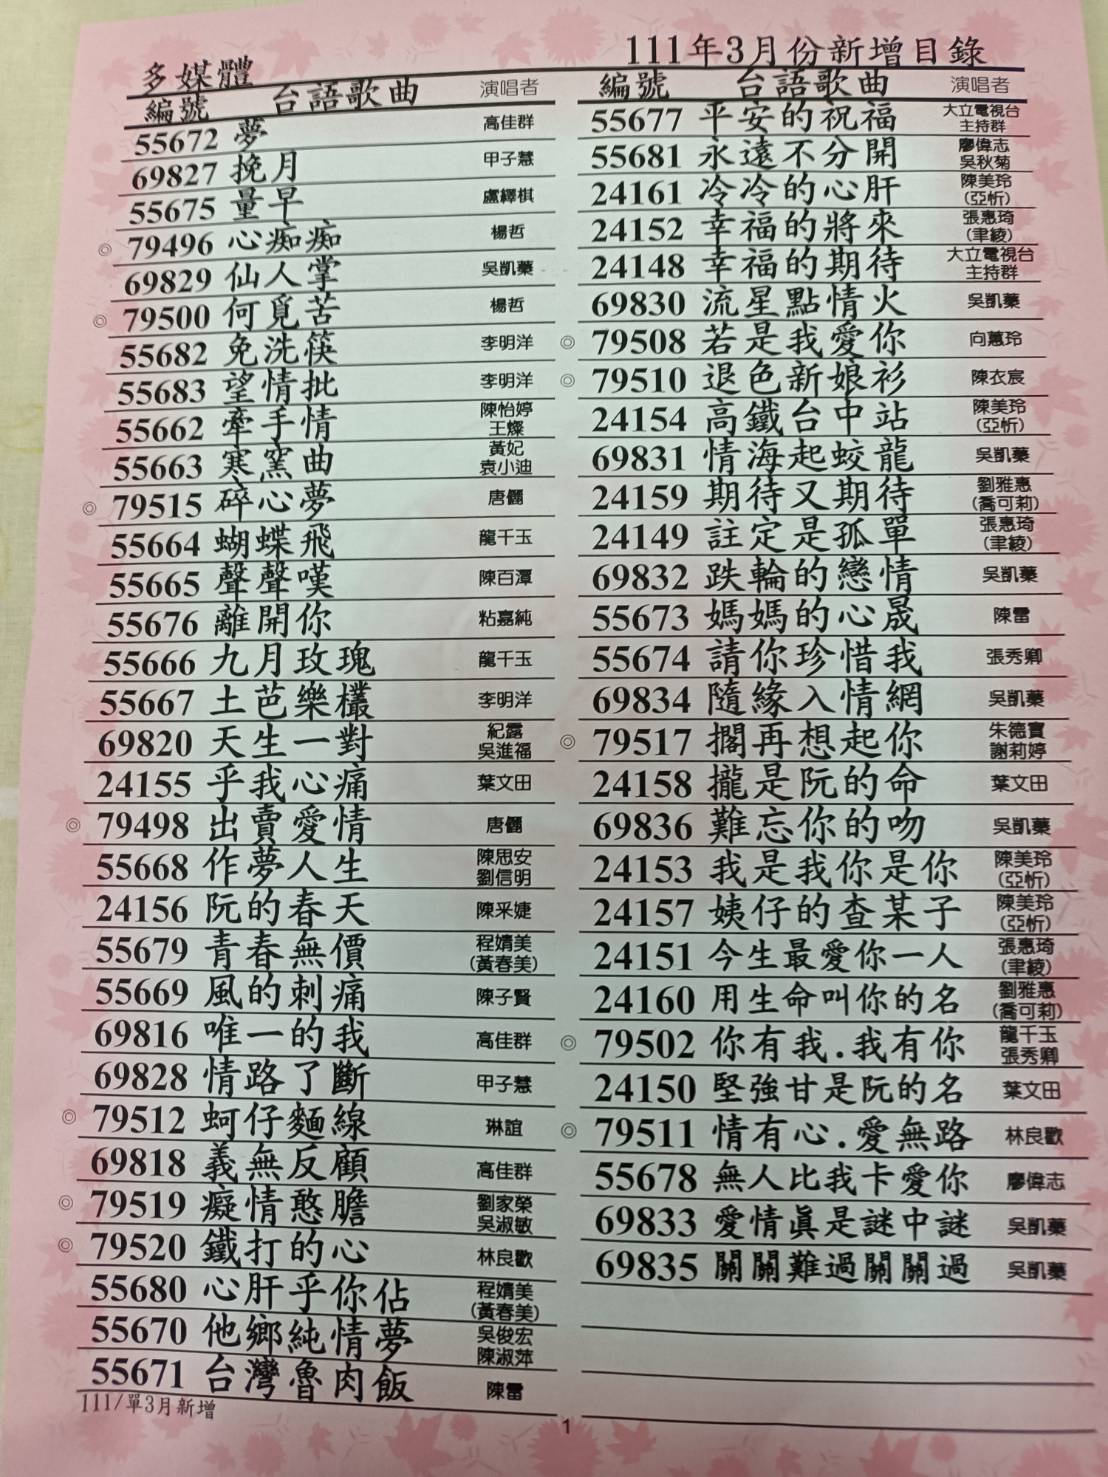 多媒體
111年3月份新增目錄
編號 台語歌曲 演唱者
55672 夢 高佳群
69827 挽月 甲子慧
55675 量早 盧繹棋
◎ 79496 心痴痴 楊哲
69829 仙人掌 吳凱蘋
◎ 79500 何覓苦 楊哲
55682 免洗筷 李明洋
55683 望情批 李明洋
55662 牽手情 陳怡婷 王燦
55663 寒窯曲 黃妃 袁小迪
◎ 79515 碎心夢 唐儷
55664 蝴蝶飛 龍千玉
55665 聲聲嘆 陳百潭
55676 離開你 粘嘉純
55666 九月玫瑰 龍千玉
55667 土芭樂欉 李明洋
69820 天生一對 紀露 吳進福
24155 乎我心痛 葉文田
◎ 79498 出賣愛情 唐儷
55668 作夢人生 陳思安 劉信明
24156 阮的春天 陳采婕
55679 青春無價 程婧美 (黃春美)
55669 風的刺痛 陳子賢
69816 唯一的我 高佳群
69828 情路了斷 甲子慧
◎ 79512 蚵仔麵線 琳誼
69818 義無反顧 高佳群
◎ 79519 癡情憨膽 劉家榮 吳淑敏
◎ 79520 鐵打的心 林良歡
55680 心肝乎你佔 程婧美 (黃春美)
55670 他鄉純情夢 吳俊宏 陳淑萍
55671 台灣魯肉飯 陳雷
111/單3月新增
編號 台語歌曲 演唱者
55677 平安的祝福 大立電視台 主持群
55681 永遠不分開 廖偉志 吳秋菊
24161 冷冷的心肝 陳美玲 (亞忻)
24152 幸福的將來 張惠琦 (聿綾)
24148 幸福的期待 大立電視台 主持群
69830 流星點情火 吳凱蘋
◎ 79508 若是我愛你 向蕙玲
◎ 79510 退色新娘衫 陳衣宸
24154 高鐵台中站 陳美玲 (亞忻)
69831 情海起蛟龍 吳凱蘋
24159 期待又期待 劉雅惠 (喬可莉)
24149 註定是孤單 張惠琦 (聿綾)
69832 跌輪的戀情 吳凱蘋
55673 媽媽的心晟 陳雷
55674 請你珍惜我 張秀卿
69834 隨緣入情網 吳凱蘋
◎ 79517 擱再想起你 朱德寶 謝莉婷
24158 攏是阮的命 葉文田
69836 難忘你的吻 吳凱蘋
24153 我是我你是你 陳美玲 (亞忻)
24157 姨仔的查某子 陳美玲 (亞忻)
24151 今生最愛你一人 張惠琦 (聿綾)
24160 用生命叫你的名 劉雅惠 (喬可莉)
◎ 79502 你有我.我有你 龍千玉 張秀卿
24150 堅強甘是阮的名 葉文田
◎ 79511 情有心.愛無路 林良歡
55678 無人比我卡愛你 廖偉志
69833 愛情真是謎中謎 吳凱蘋
69835 關關難過關關過 吳凱蘋
1